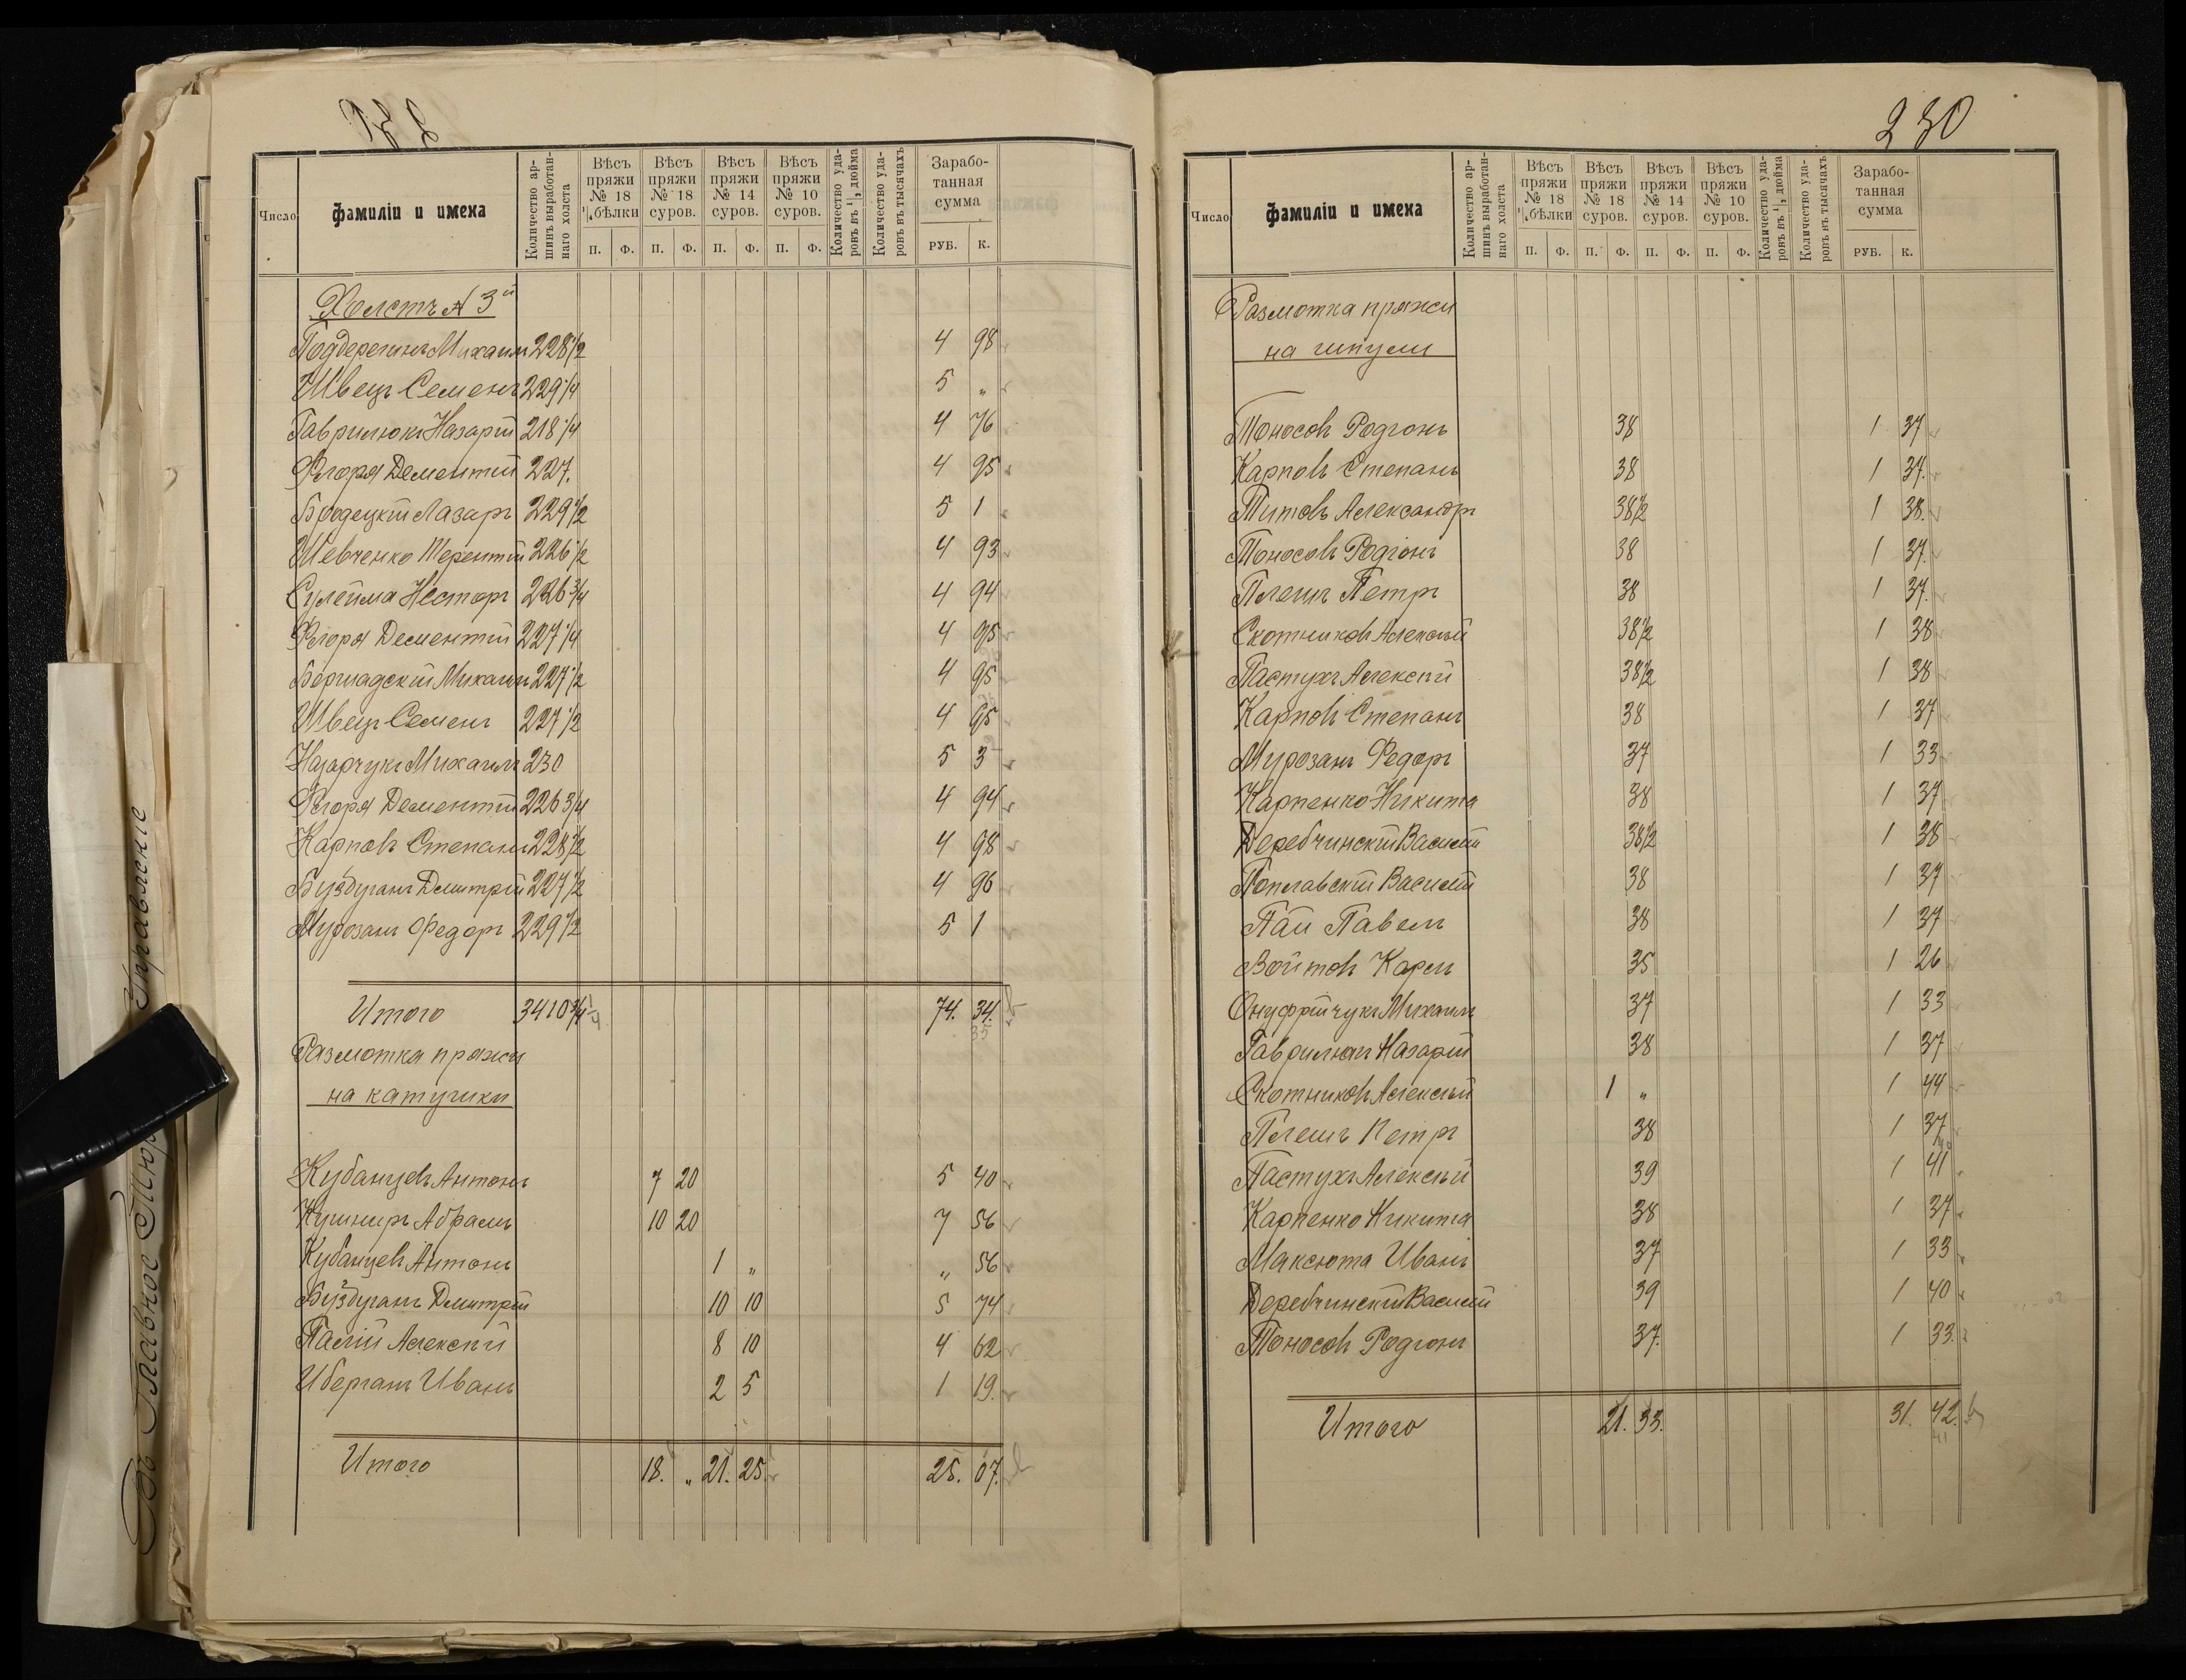 Число Фамиліи и имена Количество аршинъ выработаннаго холста Вѣсъ пряжи № 18 ½ бѣлки Вѣсъ пряжи № 18 суров. Вѣсъ пряжи № 14 суров. Вѣсъ пряжи № 10 суров. Количество ударовъ въ дюйма Количество ударовъ въ тысячахъ Заработанная сумма
П. Ф. П. Ф. П. Ф. П. Ф. РУБ. К.
Холстъ № 3й
Михаилъ 228½ 4 98
Швецъ Семенъ 229¼ 5 „
Гаврилюкъ Назарій 218¼ 4 76
Дементій 227. 4 95
Бродецкій Лазарь 229½ 5 1
Шевченко Терентій 226½ 4 93
Сулейма Несторъ 226¾ 4 94
Дементій 227¼ 4 95
Бершадскій Михаилъ 227½ 4 95
Швецъ Семенъ 227½ 4 95
Назарчукъ Михаилъ 230 5 3
Дементій 226¾ 4 94
Карповъ Степанъ 228½ 4 98
Буздуганъ Дмитрій 227½ 4 96
Мурозанъ Федоръ 229½ 5 1
Итого 3410¾ 74. 34.
35
Размотка пряжи
на катушки
Кубанцевъ Антонъ 7 20 5 40
Кушниръ Абрамъ 10 20 7 56
Кубанцевъ Антонъ 1 „ „ 56
Буздуганъ Дмитрій 10 10 5 74
Палій Алексѣй 8 10 4 62
Иберганъ Иванъ 2 5 1 19.
Итого 18. „ 21. 25. 25. 07.
230
Число Фамиліи и имена Количество аршинъ выработаннаго холста Вѣсъ пряжи № 18 ½ бѣлки Вѣсъ пряжи № 18 суров. Вѣсъ пряжи № 14 суров. Вѣсъ пряжи № 10 суров. Количество ударовъ въ дюйма Количество ударовъ въ тысячахъ Заработанная сумма
П. Ф. П. Ф. П. Ф. П. Ф. РУБ. К.
Размотка пряжи
на шпули
Тоносовъ Родіонъ 38 1 37
Карповъ Степанъ 38 1 37.
Титовъ Александръ 38½ 1 38.
Тоносовъ Родіонъ 38 1 37.
Плешъ Петръ 38 1 37.
Скотниковъ Алексѣй 38½ 1 38
Пастухъ Алексѣй 38½ 1 38
Карповъ Степанъ 38 1 37
Мурозанъ Федоръ 37 1 33
Карпенко Никита 38 1 37
Деребчинскій Василій 38½ 1 38
Поплавскій Василій 38 1 37
Пай Павелъ 38 1 37
Войтовъ Карпъ 35 1 26
Онуфрійчукъ Михаилъ 37 1 33
Гаврилюкъ Назарій 38 1 37
Скотниковъ Алексѣй 1 „ 1 44
Плешъ Петръ 38 1 37
40
Пастухъ Алексѣй 39 1 41
Карпенко Никита 38 1 37
Максюта Иванъ 37 1 33
Деребчинскій Василій 39 1 40
Тоносовъ Родіонъ 37. 1 33.
Итого 21. 33. 31. 42.
41
Въ Главное Управленіе